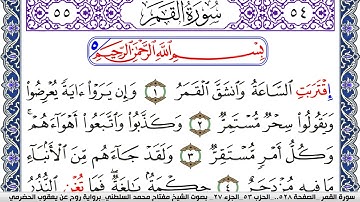 ٥٤ سُورَةُ القَمَرِ ٥٥
بِسْمِ اللَّهِ الرَّحْمَٰنِ الرَّحِيمِ
اِقْتَرَبَتِ السَّاعَةُ وَانشَقَّ الْقَمَرُ ١ وَإِن يَرَوْاْ ءَايَةً يُعْرِضُواْ
وَيَقُولُواْ سِحْرٌ مُّسْتَمِرٌّ ٢ وَكَذَّبُواْ وَاتَّبَعُواْ أَهْوَآءَهُمْ
وَكُلُّ أَمْرٍ مُّسْتَقِرٌّ ٣ وَلَقَدْ جَآءَهُم مِّنَ الْأَنۢبَآءِ
مَا فِيهِ مُزْدَجَرٌ ٤ حِكْمَةٌ بَٰلِغَةٌ فَمَا تُغْنِ النُّذُرُ
سورة القمر الصفحة ٥٢٨ .. الحزب ٥٣ الجزء ٢٧ .. بصوت الشيخ مفتاح محمد السلطني .. برواية روح عن يعقوب الحضرمي